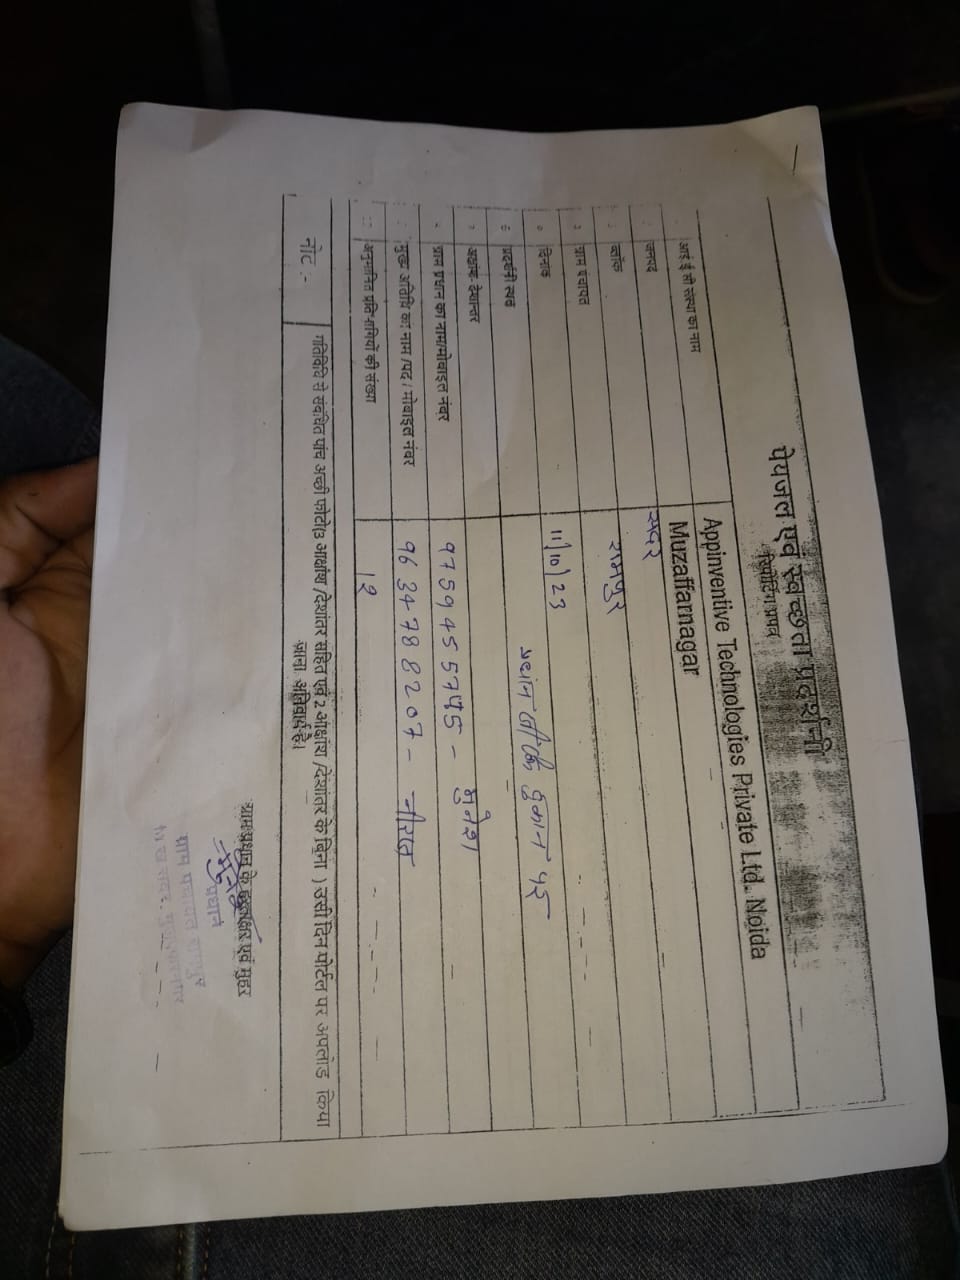 पेयजल एवं स्वच्छता प्रदर्शनी
रिपोर्टिंग प्रपत्र
आई ई सी संस्था का नाम Appinventive Technologies Private Ltd. Noida
जनपद Muzaffarnagar
ब्लॉक सदर
ग्राम पंचायत रामपुर
दिनांक 11/10/23
प्रदर्शनी स्थल प्रधान जी की दुकान पर
अक्षांश देशान्तर
ग्राम प्रधान का नाम/मोबाइल नंबर 9759455745 - मुनेश
मुख्य अतिथि का नाम /पद / मोबाइल नंबर 9634788207 - नीरज
अनुमानित प्रतिभागियों की संख्या 12
नोट :- गतिविधि से संबंधित पांच अच्छी फोटो(3 अक्षांश /देशांतर सहित एवं 2 अक्षांश /देशांतर के बिना ) उसी दिन पोर्टल पर अपलोड किया
जाना अनिवार्य है।
ग्राम प्रधान के हस्ताक्षर एवं मुहर
प्रधान
ग्राम पंचायत रामपुर